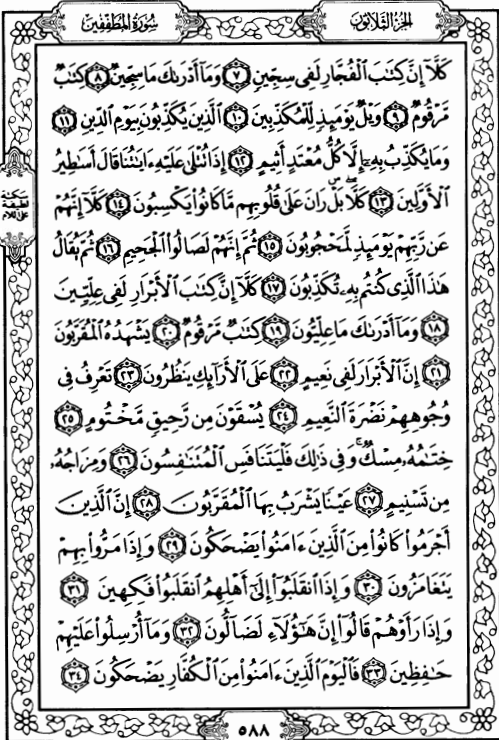 الجزء الثلاثون
سورة المطففين
كَلَّآ إِنَّ كِتَٰبَ ٱلْفُجَّارِ لَفِى سِجِّينٍ ٧ وَمَآ أَدْرَىٰكَ مَا سِجِّينٌ ٨ كِتَٰبٌ
مَّرْقُومٌ ٩ وَيْلٌ يَوْمَئِذٍ لِّلْمُكَذِّبِينَ ١٠ ٱلَّذِينَ يُكَذِّبُونَ بِيَوْمِ ٱلدِّينِ ١١
وَمَا يُكَذِّبُ بِهِۦٓ إِلَّا كُلُّ مُعْتَدٍ أَثِيمٍ ١٢ إِذَا تُتْلَىٰ عَلَيْهِ ءَايَٰتُنَا قَالَ أَسَٰطِيرُ
ٱلْأَوَّلِينَ ١٣ كَلَّا ۖ بَلْ ۜ رَانَ عَلَىٰ قُلُوبِهِم مَّا كَانُوا۟ يَكْسِبُونَ ١٤ كَلَّآ إِنَّهُمْ
سكتة
لطيفة
على اللام
عَن رَّبِّهِمْ يَوْمَئِذٍ لَّمَحْجُوبُونَ ١٥ ثُمَّ إِنَّهُمْ لَصَالُوا۟ ٱلْجَحِيمِ ١٦ ثُمَّ يُقَالُ
هَٰذَا ٱلَّذِى كُنتُم بِهِۦ تُكَذِّبُونَ ١٧ كَلَّآ إِنَّ كِتَٰبَ ٱلْأَبْرَارِ لَفِى عِلِّيِّينَ
١٨ وَمَآ أَدْرَىٰكَ مَا عِلِّيُّونَ ١٩ كِتَٰبٌ مَّرْقُومٌ ٢٠ يَشْهَدُهُ ٱلْمُقَرَّبُونَ
٢١ إِنَّ ٱلْأَبْرَارَ لَفِى نَعِيمٍ ٢٢ عَلَى ٱلْأَرَآئِكِ يَنظُرُونَ ٢٣ تَعْرِفُ فِى
وُجُوهِهِمْ نَضْرَةَ ٱلنَّعِيمِ ٢٤ يُسْقَوْنَ مِن رَّحِيقٍ مَّخْتُومٍ ٢٥
خِتَٰمُهُۥ مِسْكٌ ۚ وَفِى ذَٰلِكَ فَلْيَتَنَافَسِ ٱلْمُتَنَٰفِسُونَ ٢٦ وَمِزَاجُهُۥ
مِن تَسْنِيمٍ ٢٧ عَيْنًا يَشْرَبُ بِهَا ٱلْمُقَرَّبُونَ ٢٨ إِنَّ ٱلَّذِينَ
أَجْرَمُوا۟ كَانُوا۟ مِنَ ٱلَّذِينَ ءَامَنُوا۟ يَضْحَكُونَ ٢٩ وَإِذَا مَرُّوا۟ بِهِمْ
يَتَغَامَزُونَ ٣٠ وَإِذَا ٱنقَلَبُوٓا۟ إِلَىٰٓ أَهْلِهِمُ ٱنقَلَبُوا۟ فَكِهِينَ ٣١
وَإِذَا رَأَوْهُمْ قَالُوٓا۟ إِنَّ هَٰٓؤُلَآءِ لَضَآلُّونَ ٣٢ وَمَآ أُرْسِلُوا۟ عَلَيْهِمْ
حَٰفِظِينَ ٣٣ فَٱلْيَوْمَ ٱلَّذِينَ ءَامَنُوا۟ مِنَ ٱلْكُفَّارِ يَضْحَكُونَ ٣٤
٥٨٨